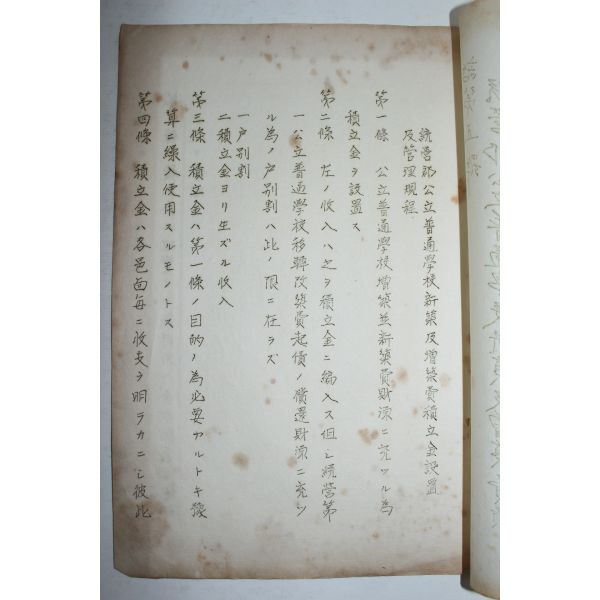 統営郡公立普通學校新築及増築費積立金設置
及管理規程
第一條 公立普通學校増築並新築費財源ニ充ツル為
積立金ヲ設置ス
第二條 左ノ收入ハ之ヲ積立金ニ編入ス但シ統営第
一公立普通學校移轉改築費起債ノ償還財源ニ充ツ
ル為ノ戸別割ハ此ノ限ニ在ラズ
一戸別割
二積立金ヨリ生ズル收入
第三條 積立金ハ第一條ノ目的ノ為必要アルトキ豫
算ニ繰入使用スルモノトス
第四條 積立金ハ各邑面毎ニ收支ヲ明ラカニシ彼此